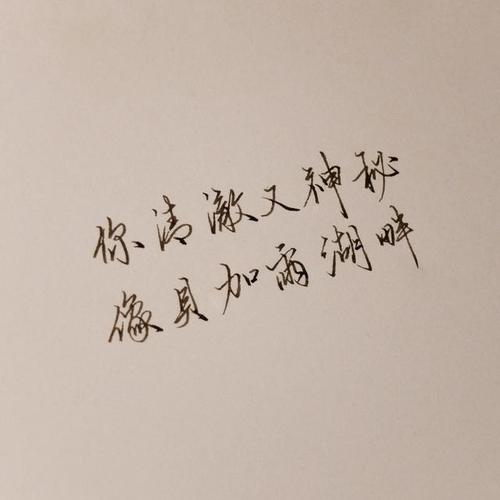 你清澈又神秘
像贝加雨湖畔